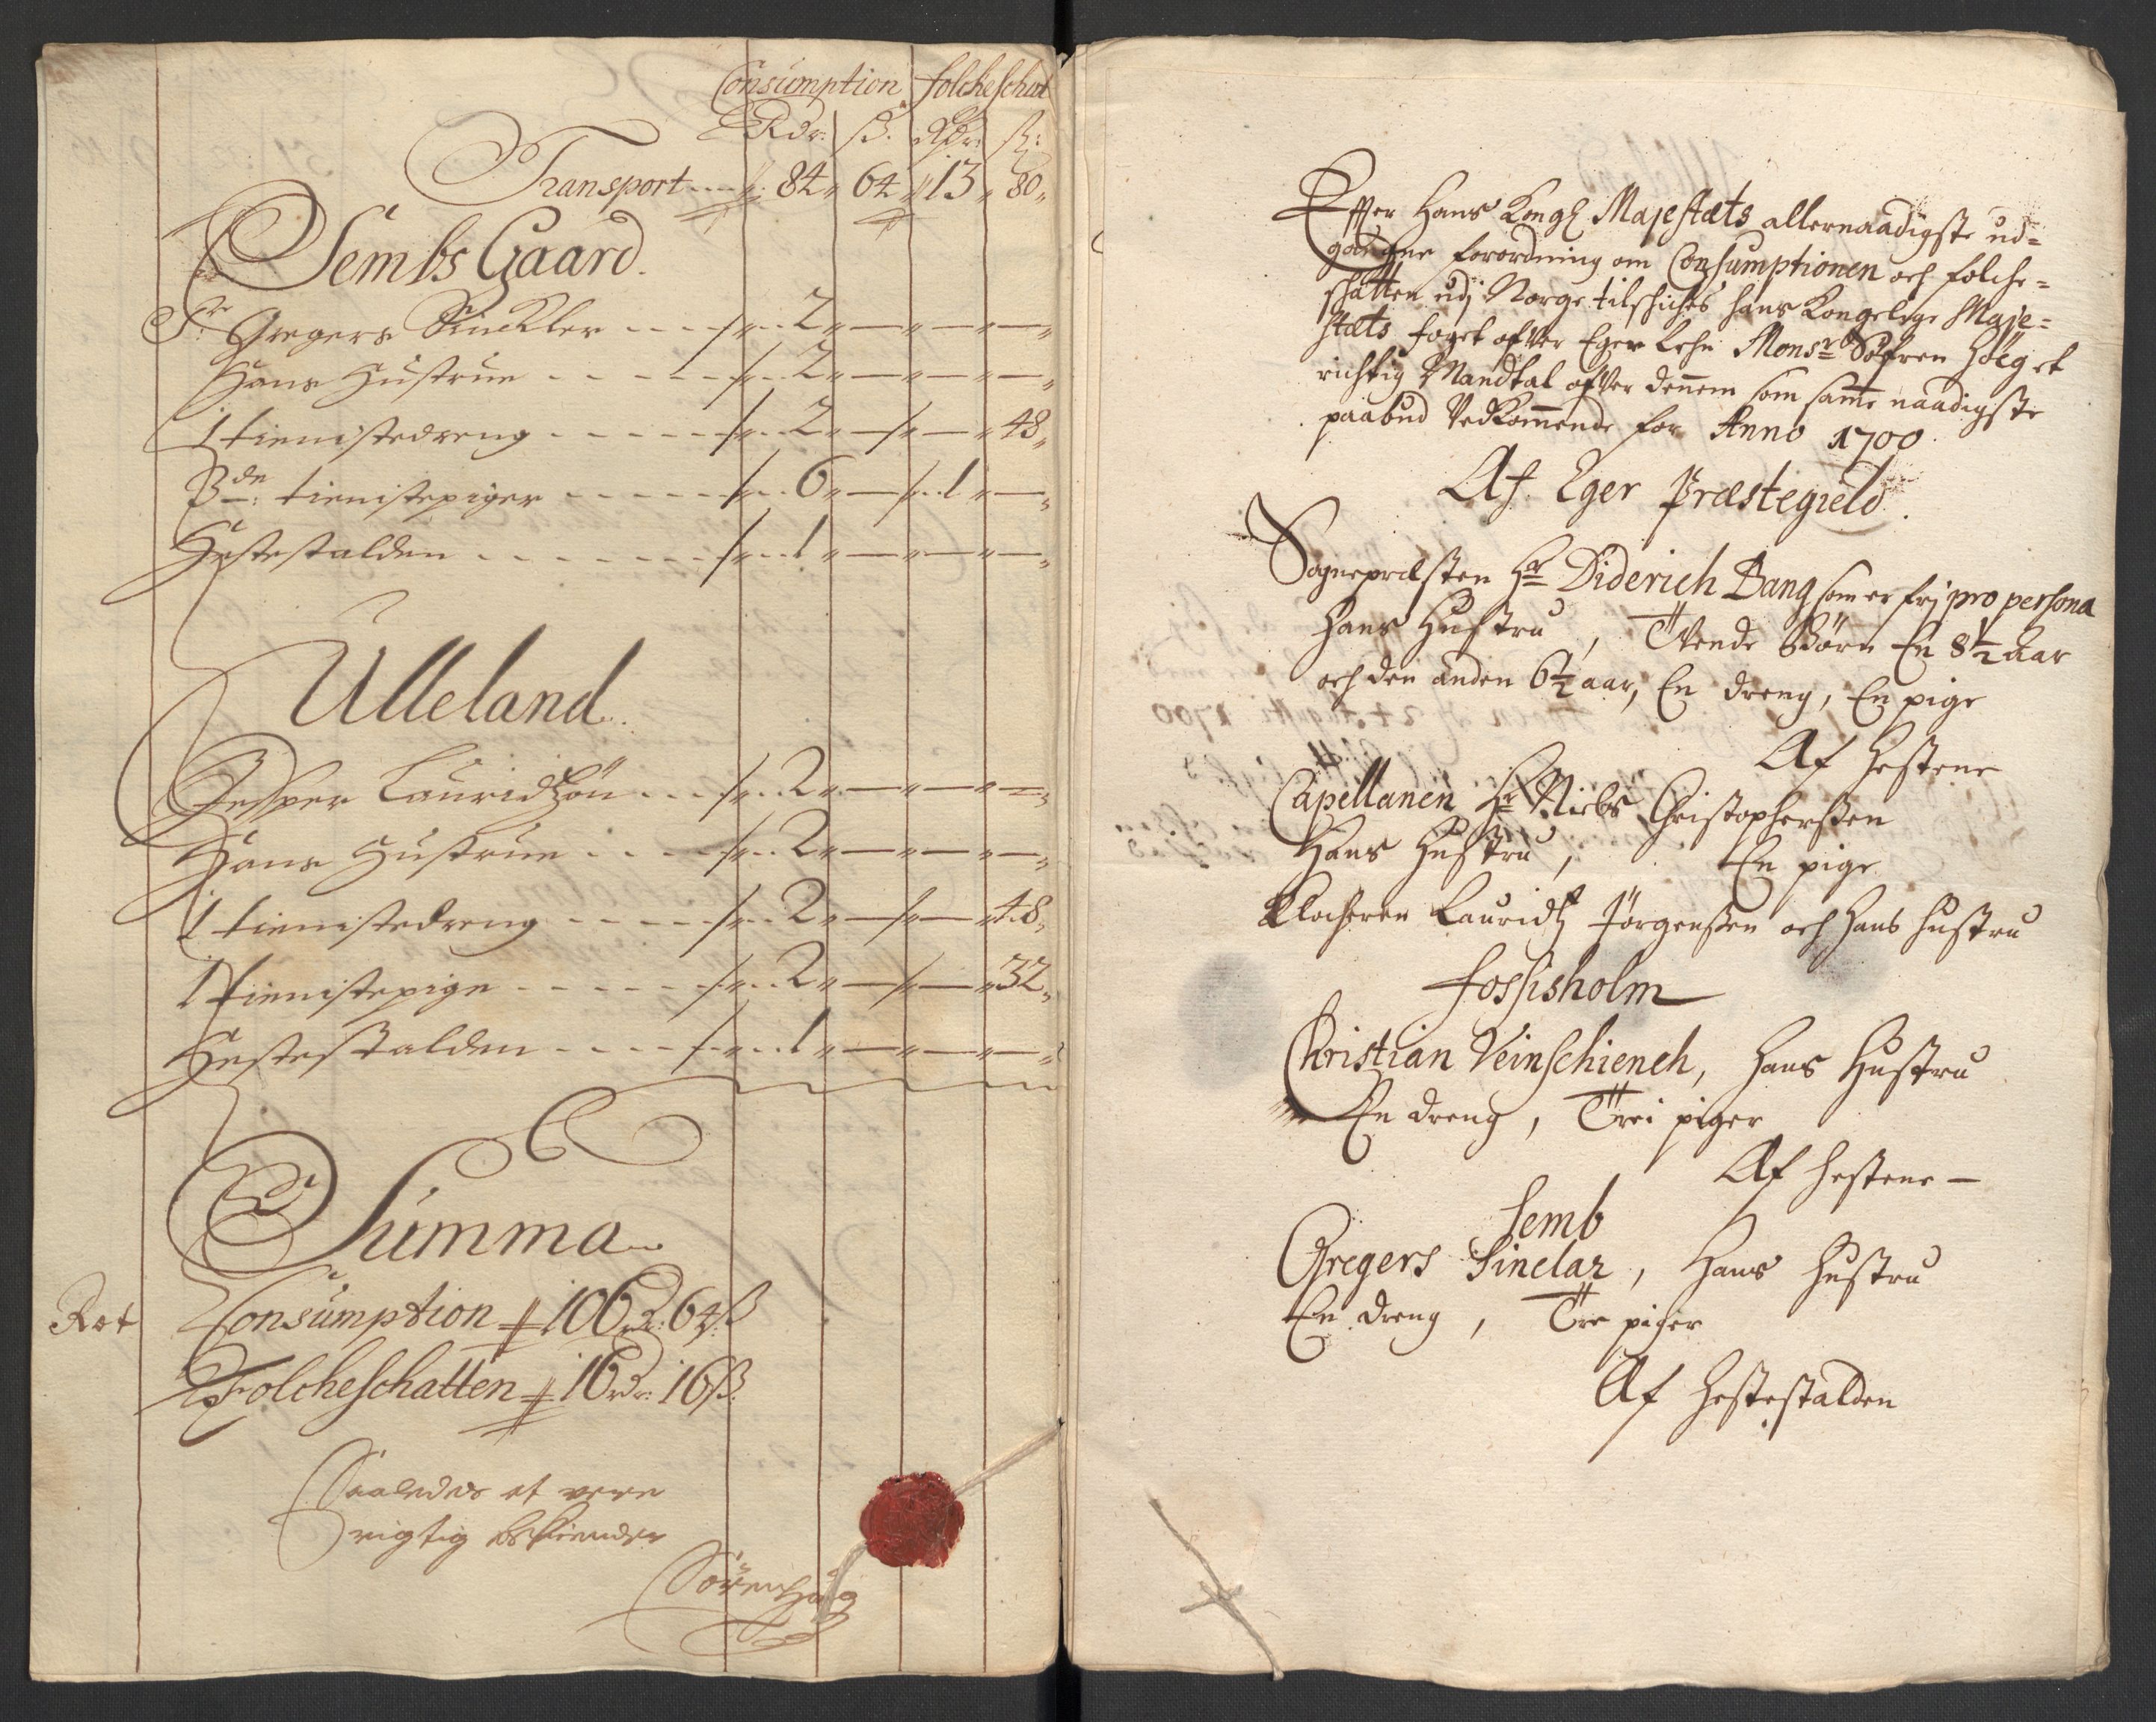 Consumption folcheschat
Rdr. ß. Rdr. ß:
Transport 84 64 13 80
Sembs Gaard.
Sr. Gregers Sinckler 2
Hans Hustrue 2
1 tienistedreng 2 48
3de: tienistepiger 6 1
Hestestalden 1
Ulleland
Jesper Lauridtzøn 2
Hans Hustrue 2
1 tienistedreng 2 48
1 tienistepige 2 32
Hestestalden 1
Summa
Consumption 106 Rdr: 64 ß
Folcheschatten 16 Rdr: 16 ß.
Saaledes at vere
rigtig bekiender
Sören Høeg
Effter Hans Kongl Majestæts allernaadigste ud-
gangne forordning om Consumptionen och folche-
schatten udj Norge tilschiches hans Kongelige Maje-
stæts foget ofver Eger Lehn Monsr Söfren Höeg et
richtig Mandtal ofver dennem som samme naadigste
paabud Vedkommende for Anno 1700.
Af Eger Præstegield.
Sognepræsten Hr Diderich Bang som er frj pro persona
Hans Hustru, Tvende Börn En 8½ aar
och den anden 6½ aar, En dreng, En pige
Af hestene
Capellanen Hr Niels Christophersen
Hans Hustru, En pige
Klocheren Lauridtz Jörgensen och Hans hustru
Fossisholm
Christian Veinschiench, Hans Hustru
En dreng, Trei piger
Af hestene
Semb
Gregers Sinclar, Hans Hustru
En dreng, Tre piger
Af hestestalden